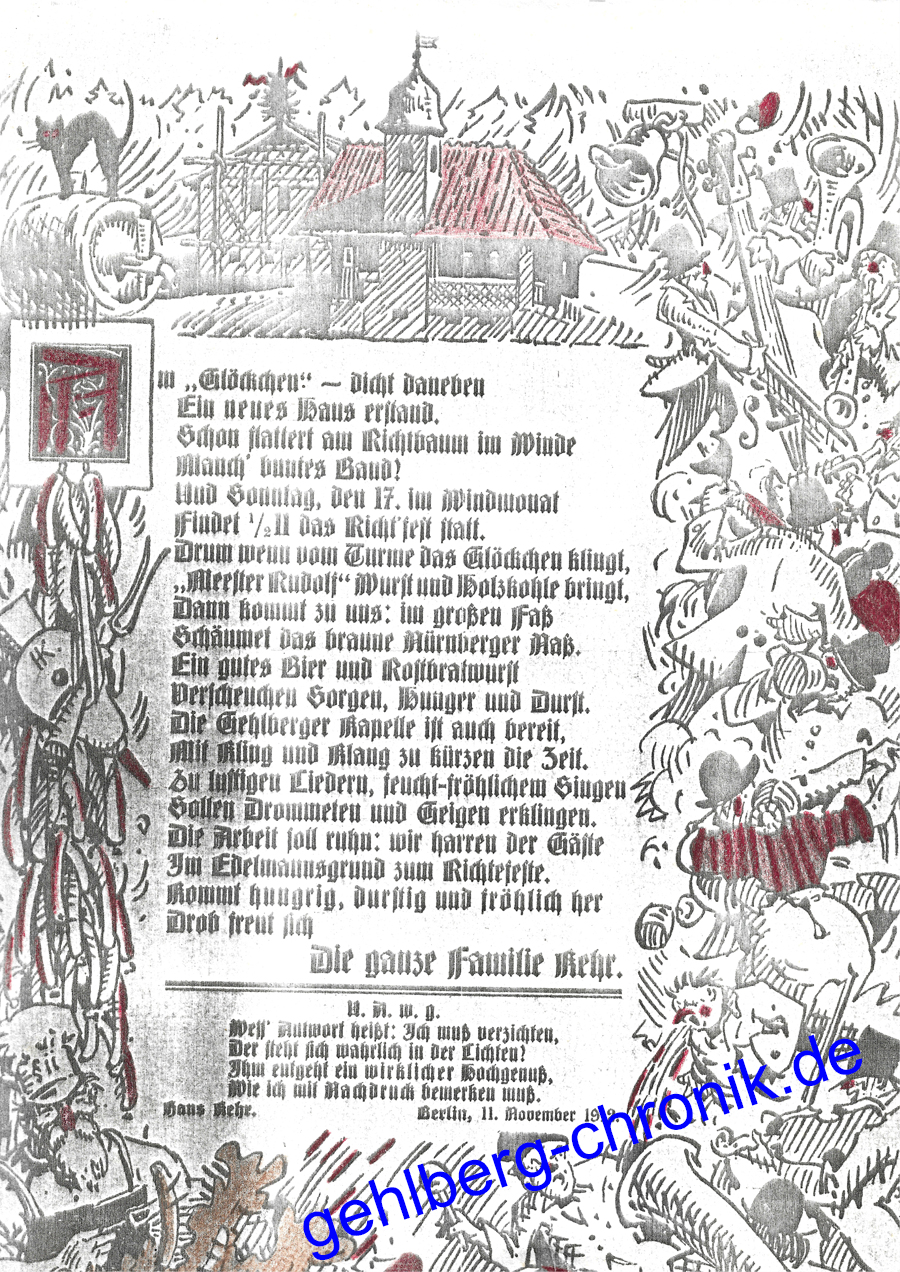 Am „Glöckchen“ – dicht daneben
Ein neues Haus erstand.
Schon flattert am Richtbaum im Winde
Manch' buntes Band!
Und Sonntag, den 17. im Windmonat
Findet ½11 das Richt'fest statt.
Drum wenn vom Turme das Glöckchen klingt,
„Meester Rudolf“ Wurst und Holzkohle bringt,
Dann kommt zu uns: im großen Faß
Schäumet das braune Nürnberger Naß.
Ein gutes Bier und Rostbratwurst
Verscheuchen Sorgen, Hunger und Durst.
Die Gehlberger Kapelle ist auch bereit,
Mit Kling und Klang zu kürzen die Zeit.
Zu lustigen Liedern, feucht-fröhlichem Singen
Sollen Drommeten und Geigen erklingen.
Die Arbeit soll ruhn: wir harren der Gäste
Im Edelmannsgrund zum Richtefeste.
Kommt hungrig, durstig und fröhlich her
Drob freut sich
Die ganze Familie Kehr.
U. A. w. g.
Weß' Antwort heißt: Ich muß verzichten,
Der steht sich wahrlich in der Lichten!
Ihm entgeht ein wirklicher Hochgenuß,
Wie ich mit Nachdruck bemerken muß.
Hans Kehr. Berlin, 11. November
HK.
gehlberg-chronik.de